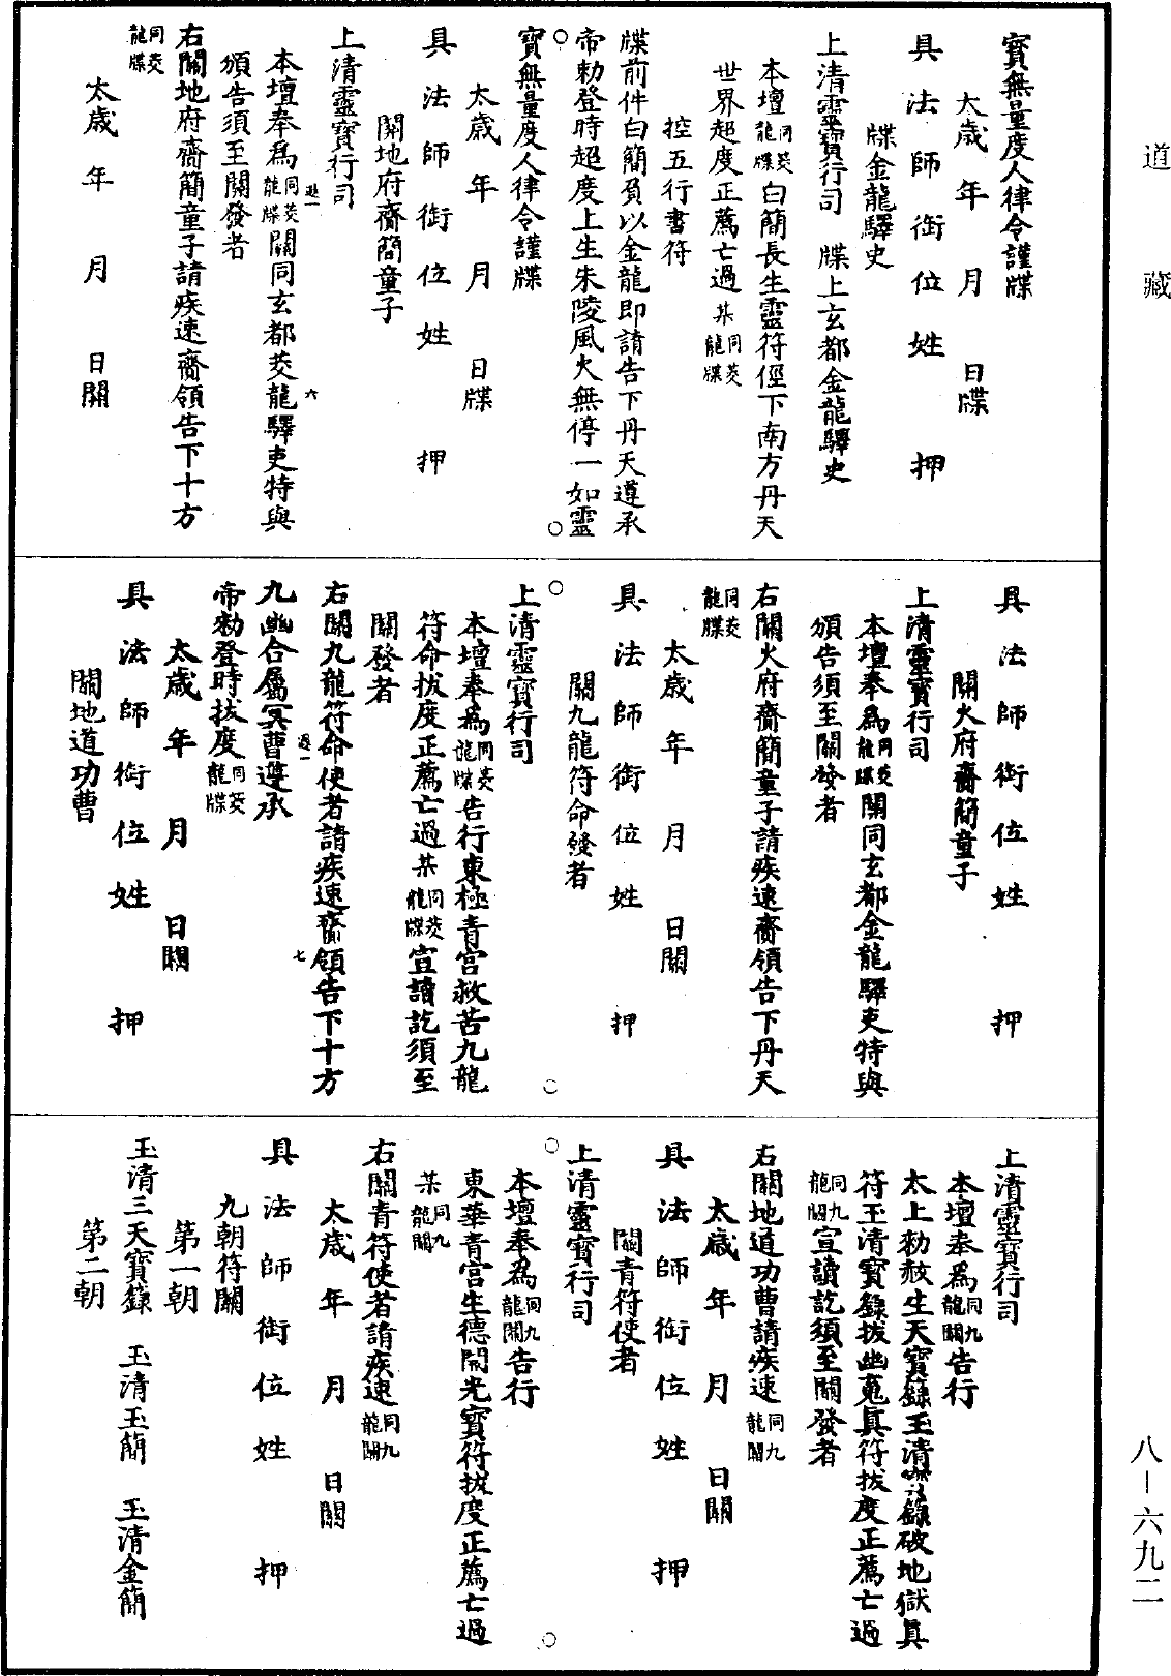 道藏
八—六九二
寳無量度人律令謹牒
太歲　年　月　日牒
具法師銜位姓　押
牒金龍驛史
上清靈寳行司　牒上玄都金龍驛史
本壇同茭龍牒白簡長生靈符徑下南方丹天
世界超度正薦亡過某同茭龍牒
控五行書符
牒前件白簡負以金龍即請告下丹天遵承
帝勑登時超度上生朱陵風火無停一如靈
寳無量度人律令謹牒
太歲　年　月　日牒
具法師銜位姓　押
關地府齎簡童子
上清靈寳行司
本壇奉爲同茭龍牒關同玄都茭龍驛吏特與
頒告須至關發者
右關地府齎簡童子請疾速齎領告下十方
同茭龍牒
太歲　年　月　日關
具法師銜位姓　押
關火府齎簡童子
上清靈寳行司
本壇奉爲同茭龍牒關同玄都金龍驛吏特與
頒告須至關發者
右關火府齎簡童子請疾速齎領告下丹天
同茭龍牒
太歲　年　月　日關
具法師銜位姓　押
關九龍符命發者
上清靈寳行司
本壇奉爲同茭龍牒告行東極青宫救苦九龍
符命拔度正薦亡過某同茭龍牒宣讀訖須至
關發者
右關九龍符命使者請疾速齎領告下十方
九幽合屬冥曹遵承
帝勑登時拔度同茭龍牒
太歲　年　月　日關
具法師銜位姓　押
關地道功曹
上清靈寳行司
本壇奉爲同九龍關告行
太上勑赦生天寳籙玉清籙破地獄真
符玉清寳籙拔幽䰟真符拔度正薦亡過
同九龍關宣讀訖須至關發者
右關地道功曹請疾速同九龍關
太歲　年　月　日關
具法師銜位姓　押
關青符使者
上清靈寳行司
本壇奉爲同九龍關告行
東華青宫生德開光寳符拔度正薦亡過
某同九龍關
右關青符使者請疾速同九龍關
太歲　年　月　日關
具法師銜位姓　押
九朝符關
第一朝
玉清三天寳籙　玉清玉簡　玉清金簡
第二朝